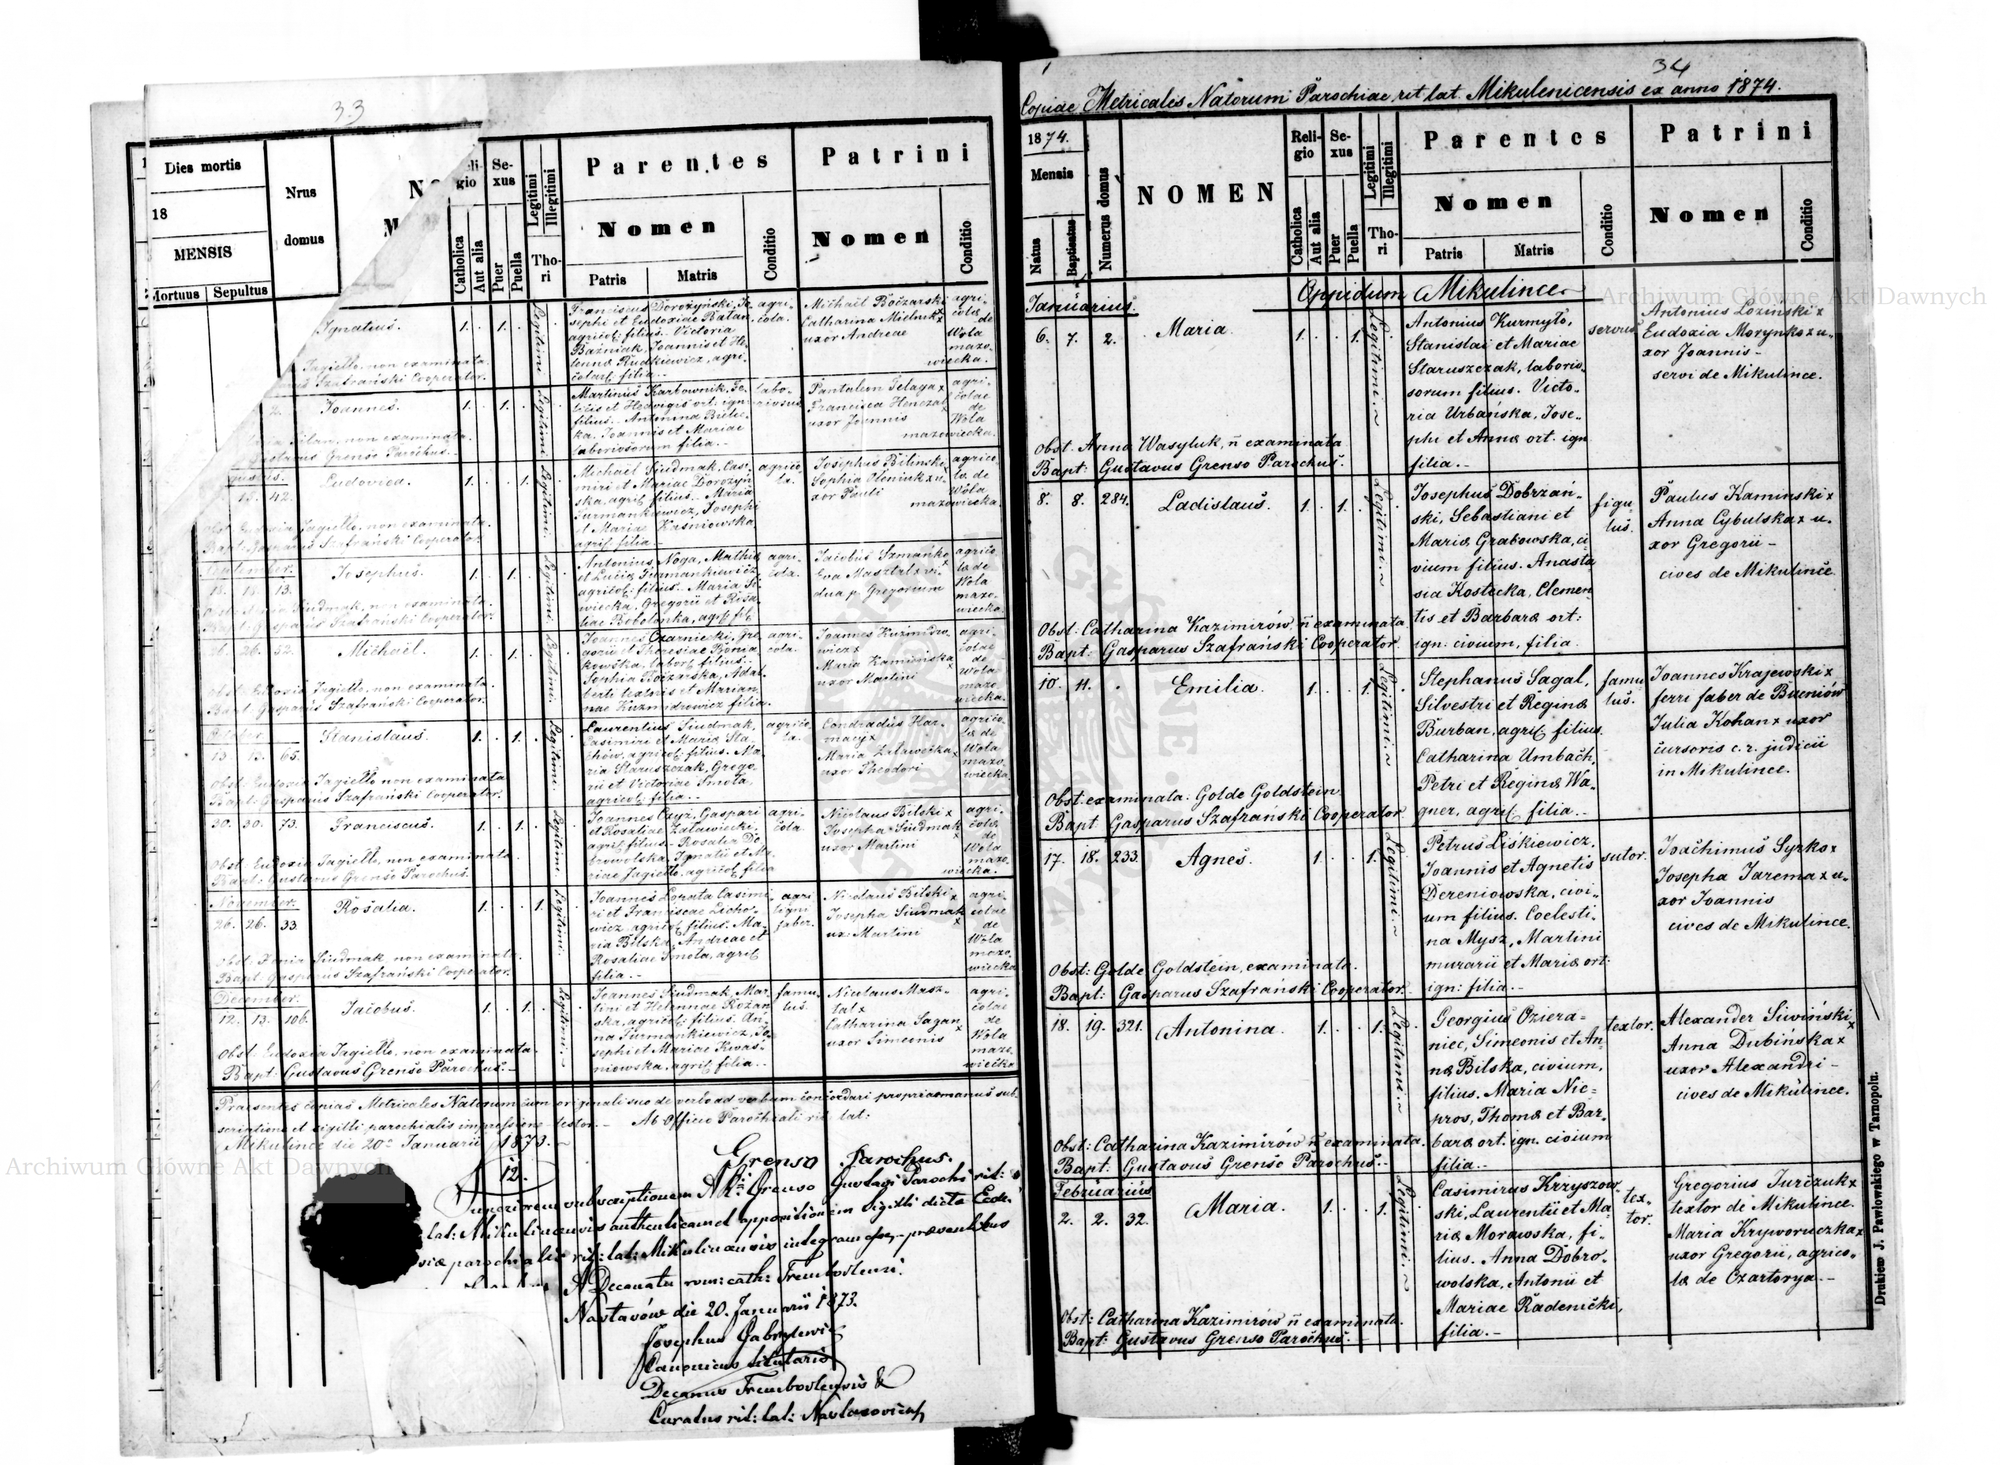 33
Dies mortis
18
MENSIS
Mortuus Sepultus
Nrus
domus
Catholica
Aut alia
Se-
xus
Puer
Puella
Legitimi
Illegitimi
Tho-
ri
Parentes
Nomen
Patris Matris
Conditio
Patrini
Nomen
Conditio
Ignatius. 1. 1.
Jagiełło, non examinata
Szafrański Cooperator.
Franciscus Dorożyński, Jo-
sephi et Eudoxiae Ratan
agricol. filius. Victoria
Baźniak, Joannis et He-
lenae Rudkiewicz, agri-
colar. filia.
agri-
cola.
Michaël Boczarski x
Catharina Mielnik x
uxor Andreae
agri-
colae de
Wola
mazo-
wiecka.
2. Joannes. 1. 1.
non examinata.
Gustavus Grenso Parochus.
Martinus Karbownik, Fe-
licis et Hedvigis ort. ign.
filius. Antonina Biele-
ka, Joannis et Mariae
laboriosorum filia.
labo-
riosus
Pantaleon Szlaga x
Francisca Henczal x
uxor Joannis
agri-
colae
de
Wola
mazowiecka.
15. 42. Ludovica. 1. 1.
Obst. Eudoxia Jagiełło, non examinata.
Bapt. Gasparus Szafrański Cooperator.
Michaël Siudmak, Casi-
miri et Mariae Dorożyń-
ska, agric. filius. Maria
Furmankiewicz, Josephi
et Mariae Kwśniowska,
agric. filia
agrico-
la.
Josephus Bilinski x
Sophia Oleniuk x u-
xor Pauli
agrico-
la de
Wola
mazowiecka.
September.
13. 13. 13. Josephus. 1. 1.
Obst. Xenia Siudmak, non examinata.
Bapt. Gasparus Szafrański Cooperator.
Antonius Noga, Mathiae
et Luciae Furmankiewicz,
agricol. filius. Maria
Gregorii et Rosa-
liae Bobolanka, agric. fil.
agri-
cola.
Jacobus Szmańko
Eva Masztal x vi-
dua p. Gregorium
agrico-
la de
Wola
mazo-
wiecka.
26. 26. 52. Michaël. 1. 1.
Obst. Eudoxia Jagiełło, non examinata.
Bapt. Gasparus Szafrański Cooperator.
Joannes Czarniecki, Gre-
gorii et Theresiae Ronia-
kowska, labor. filius.
Sophia Boczarska, Adal-
berti textoris et Marian-
nae Kuzmidrowicz filia.
agri-
cola.
Joannes Kuźmidro-
wicz x
Maria Kamińska
uxor Martini
agri-
colae
de
Wola
mazo-
wiecka.
October.
13. 13. 65. Stanislaus. 1. 1.
Obst. Eudoxia Jagiełło non examinata.
Bapt. Gasparus Szafrański Cooperator.
Laurentius Siudmak,
Casimiri et Mariae Sta-
chów, agricol. filius. Ma-
ria Staruszczak, Grego-
rii et Victoriae Smola,
agricol. filia.
agrico-
la.
Condradus Har-
macy x
Maria Załawecka x
uxor Theodori
agrico-
lae de
Wola
mazo-
wiecka.
30. 30. 73. Franciscus. 1. 1.
Obst. Eudoxia Jagiełło, non examinata.
Bapt. Gustavus Grenso Parochus.
Joannes Czyz, Gaspari
et Rosaliae Załawiecki,
agric. filius. Rosalia Do-
browolska, Ignatii et Ma-
riae Jagiełło, agricol. filia
agri-
cola
Nicolaus Bilski x
Josepha Siudmak x
uxor Martini
agri-
colae
de
Wola
mazo-
wiecka.
November.
26. 26. 33. Rosalia. 1. 1.
Obst. Xenia Siudmak non examinata.
Bapt. Gasparus Szafrański Cooperator.
Joannes Lorata Casimi-
ri et Franciscae Licho-
wicz, agricol. filius. Ma-
ria Bilska, Andreae et
Rosaliae Smola, agric.
filia.
ligni
faber.
Nicolaus Bilski x
Josepha Siudmak x
ux. Martini
agri-
colae
de
Wola
mazo-
wiecka
December.
12. 13. 106. Jacobus. 1. 1.
Obst. Eudoxia Jagiełło, non examinata.
Bapt. Gustavus Grenso Parochus.
Joannes Siudmak, Mar-
tini et Helenae Rożan-
ska, agricol. filius. An-
na Furmankiewicz, Jo-
sephi et Mariae Kwaś-
niowska, agric. filia.
famu-
lus.
Nicolaus Masz-
tal x
Catharina Sagan x
uxor Simeonis
agri-
colae
de
Wola
mazo-
wiecka
Praesentes copias Metricales Natorum cum originali suo de verbo ad verbum concordari propriae manus sub-
scriptione et sigilli parochialis impressione testor. Ab Officio Parochiali rit. lat:
Mikulince die 20. Januarii 1873.
Grenso Parochus.
12.
subscriptionem Grenso Gustavi Parochi rit:
lat: Mikulincensis authenticam et appositionem Sigilli dictae Eccle-
siae parochialis rit: lat: Mikulincensis integram esse praesentibus
A Decanatu rom: cath: Trembovlensi.
Nastasów die 20. Januarii 1873.
Josephus Gabrylewicz
Canonicus titularis
Decanus Trembovlensis &
Curatus rit: lat: Nastasoviens.
34
Copiae Metricales Natorum Parochiae rit. lat. Mikulenicensis ex anno 1874.
1874.
Mensis
Natus
Baptisatus
Numerus domus
NOMEN
Reli-
gio
Catholica
Aut alia
Se-
xus
Puer
Puella
Legitimi
Illegitimi
Tho-
ri
Parentes
Nomen
Patris Matris
Conditio
Patrini
Nomen
Conditio
Januarius.
Oppidum Mikulince
6. 7. 2. Maria. 1. 1. Legitimi.
Obst. Anna Wasyluk, ñ examinata
Bapt: Gustavus Grenso Parochus.
Antonius Kurmyło,
Stanislai et Mariae
Staruszczak, laborio-
sorum filius. Victo-
ria Urbańska, Jose-
phi et Annae ort. ign.
filia.
servus
Antonius Lozinski x
Eudoxia Morynko x u-
xor Joannis
servi de Mikulince.
8. 8. 284. Ladislaus. 1. 1. Legitimi
Obst. Catharina Kazimirów, ñ examinata
Bapt: Gasparus Szafrański Cooperator
Josephus Dobrzań-
ski, Sebastiani et
Mariae Grabowska, ci-
vium filius. Anasta-
sia Kostecka, Clemen-
tis et Barbarae ort:
ign. civium, filia.
figu-
lus.
Paulus Kaminski x
Anna Cybulska x u-
xor Gregorii
cives de Mikulince.
10. 11. Emilia. 1. 1. Legitimi
Obst. examinata. Golde Goldstein.
Bapt Gasparus Szafrański Cooperator
Stephanus Sagal,
Silvestri et Reginae
Burban, agric. filius.
Catharina Umbach,
Petri et Reginae Wa-
gner, agric. filia.
famu-
lus.
Joannes Krajewski x
ferri faber de Bueniów
Julia Kohan x uxor
cursoris c. r. judicii
in Mikulince.
17. 18. 233. Agnes. 1. 1. Legitimi
Obst: Golde Goldstein, examinata.
Bapt: Gasparus Szafrański Cooperator.
Petrus Liśkiewicz,
Joannis et Agnetis
Dereniowska, civi-
um filius. Coelesti-
na Mysz, Martini
murarii et Mariae ort:
ign: filia.
sutor.
Joachimus Syrko x
Josepha Jarema x u-
xor Joannis
cives de Mikulince.
18. 19. 321. Antonina. 1. 1. Legitimi
Obst: Catharina Kazimirów ñ examinata.
Bapt: Gustavus Grenso Parochus.
Georgius Oziera-
niec, Simeonis et An-
nae Bilska, civium,
filius. Maria Nic-
pros, Thomae et Bar-
barae ort. ign. civium
filia.
textor.
Alexander Siwiński x
Anna Dubińska x
uxor Alexandri
cives de Mikulince.
Februarius
2. 2. 32. Maria. 1. 1. Legitimi
Obst: Catharina Kazimirów ñ examinata.
Bapt: Gustavus Grenso Parochus.
Casimirus Krzyszow-
ski, Laurentii et Ma-
riae Morawska, fi-
lius. Anna Dobro-
wolska, Antonii et
Mariae Radenicki,
filia.
tex-
tor.
Gregorius Jurczuk x
textor de Mikulince.
Maria Kryworuczka x
uxor Gregorii, agrico-
lae de Czartorya.
Drukiem J. Pawłowskiego w Tarnopolu.
Archiwum Główne Akt Dawnych
Archiwum Główne Akt Dawnych